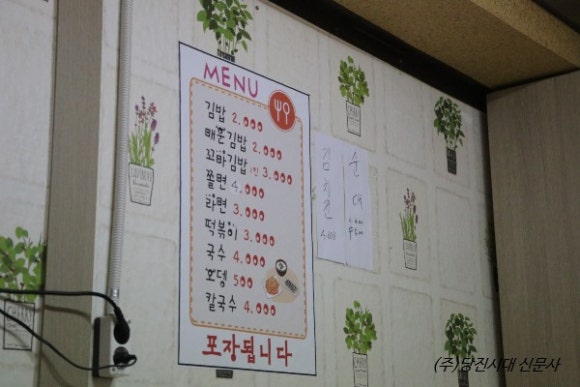 MENU
김밥 2.000
매운김밥 2.000
꼬마김밥 1인 3.000
쫄면 4.000
라면 3.000
떡볶이 3.000
국수 4.000
오뎅 500
칼국수 4.000
포장됩니다
김치전
순대
(주)당진시대 신문사